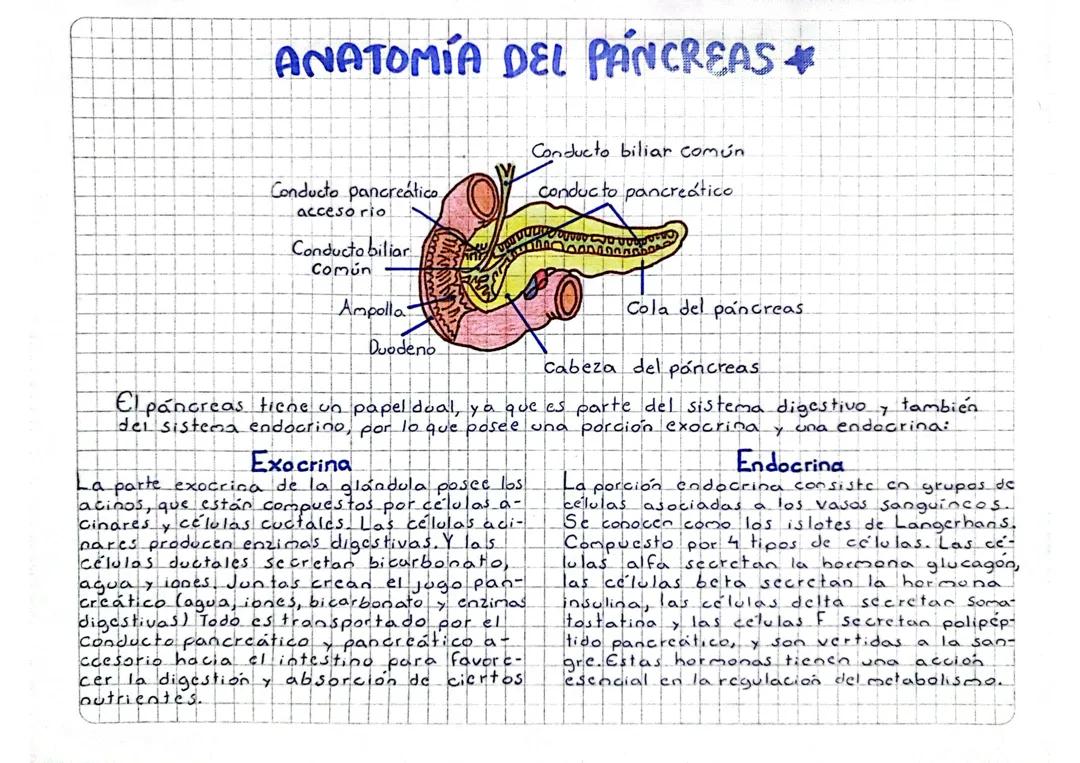 ANATOMÍA DEL PÁNCREAS
Conducto biliar común
Conducto pancreático
accesorio
conducto pancreático
Conducto biliar
común
Ampolla
Cola del páncreas
Duodeno
Cabeza del páncreas
El páncreas tiene un papel dual, ya que es parte del sistema digestivo y también
del sistema endocrino, por lo que posee una porción exocrina y una endocrina:
Exocrina
La parte exocrina de la glándula posee los
acinos, que están compuestos por células a-
cinares y células cuctales. Las células aci-
nares producen enzimas digestivas. Y las
células ductales secretan bicarbonato,
agua y iones. Juntas crean el jugo pan-
creático (agua, iones, bicarbonato y enzimas
digestivas) Todo es transportado por el
conducto pancreático y pancreático a-
ccesorio hacia el intestino para favore-
cer la digestión y absorción de ciertos
nutrientes.
Endocrina
La porción endocrina consiste en grupos de
células asociadas a los vasos sanguíneos.
Se conocen como los islotes de Langerhans.
Compuesto por 4 tipos de células. Las cé-
lulas alfa secretan la hormona glucagón,
las células beta secretan la hormona
insulina, las células delta secretan soma-
tostatina y las células F secretan polipép-
tido pancreático, y son vertidas a la san-
gre. Estas hormonas tienen una acción
esencial en la regulación del metabolismo.